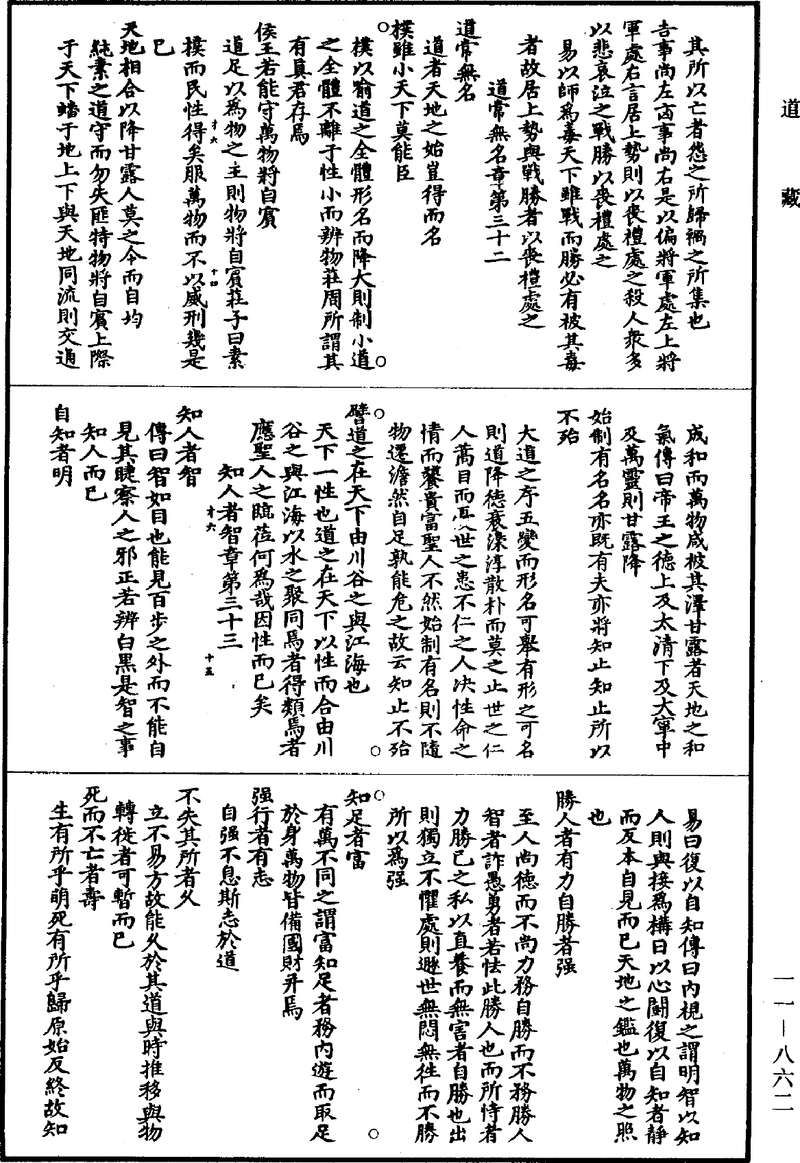 道藏
其所以亡者怨之所歸禍之所集也
吉事尚左凶事尚右是以偏將軍處左上將
軍處右言居上勢則以喪禮處之殺人衆多
以悲哀泣之戰勝以喪禮處之
易以師爲毒天下雖戰而勝必有被其毒
者故居上勢與戰勝者以喪禮處之
道常無名章第三十二
道常無名
道者天地之始豈得而名
樸雖小天下莫能臣
樸以喻道之全體形名而降大則制小道
之全體不離于性小而辨物莊周所謂其
有真君存焉
侯王若能守萬物將自賓
道足以爲物之主則物將自賓莊子曰素
樸而民性得矣服萬物而不以威刑幾是
已
天地相合以降甘露人莫之令而自均
純素之道守而勿失匪特物將自賓上際
于天下蟠于地上下與天地同流則交通
成和而萬物咸被其澤甘露者天地之和
氣傳曰帝王之德上及太清下及大寧中
及萬靈則甘露降
始制有名名亦既有夫亦將知止知止所以
不殆
大道之序五變而形名可舉有形之可名
則道降德衰澆淳散朴而莫之止世之仁
人蒿目而憂世之患不仁之人决性命之
情而饕貴富聖人不然始制有名則不隨
物遷澹然自足孰能危之故云知止不殆
譬道之在天下由川谷之與江海也
天下一性也道之在天下以性而合由川
谷之與江海以水之聚同焉者得類焉者
應聖人之臨莅何爲哉因性而已矣
知人者智章第三十三
知人者智
傳曰智如目也能見百步之外而不能自
見其睫察人之邪正若辨白黑是智之事
知人而已
自知者明
易曰復以自知傳曰内視之謂明智以知
人則與接爲構日以心鬭復以自知者靜
而反本自見而已天地之鑑也萬物之照
也
勝人者有力自勝者强
至人尚德而不尚力務自勝而不務勝人
智者詐愚勇者若怯此勝人也而所恃者
力勝己之私以直養而無害者自勝也出
則獨立不懼處則遯世無悶無徃而不勝
所以爲强
知足者富
有萬不同之謂富知足者務内遊而取足
於身萬物皆備國財并焉
强行者有志
自强不息斯志於道
不失其所者久
立不易方故能久於其道與時推移與物
轉徙者可暫而已
死而不亡者壽
生有所乎萌死有所乎歸原始反終故知
才六
十四
才六
十五
一一—八六二